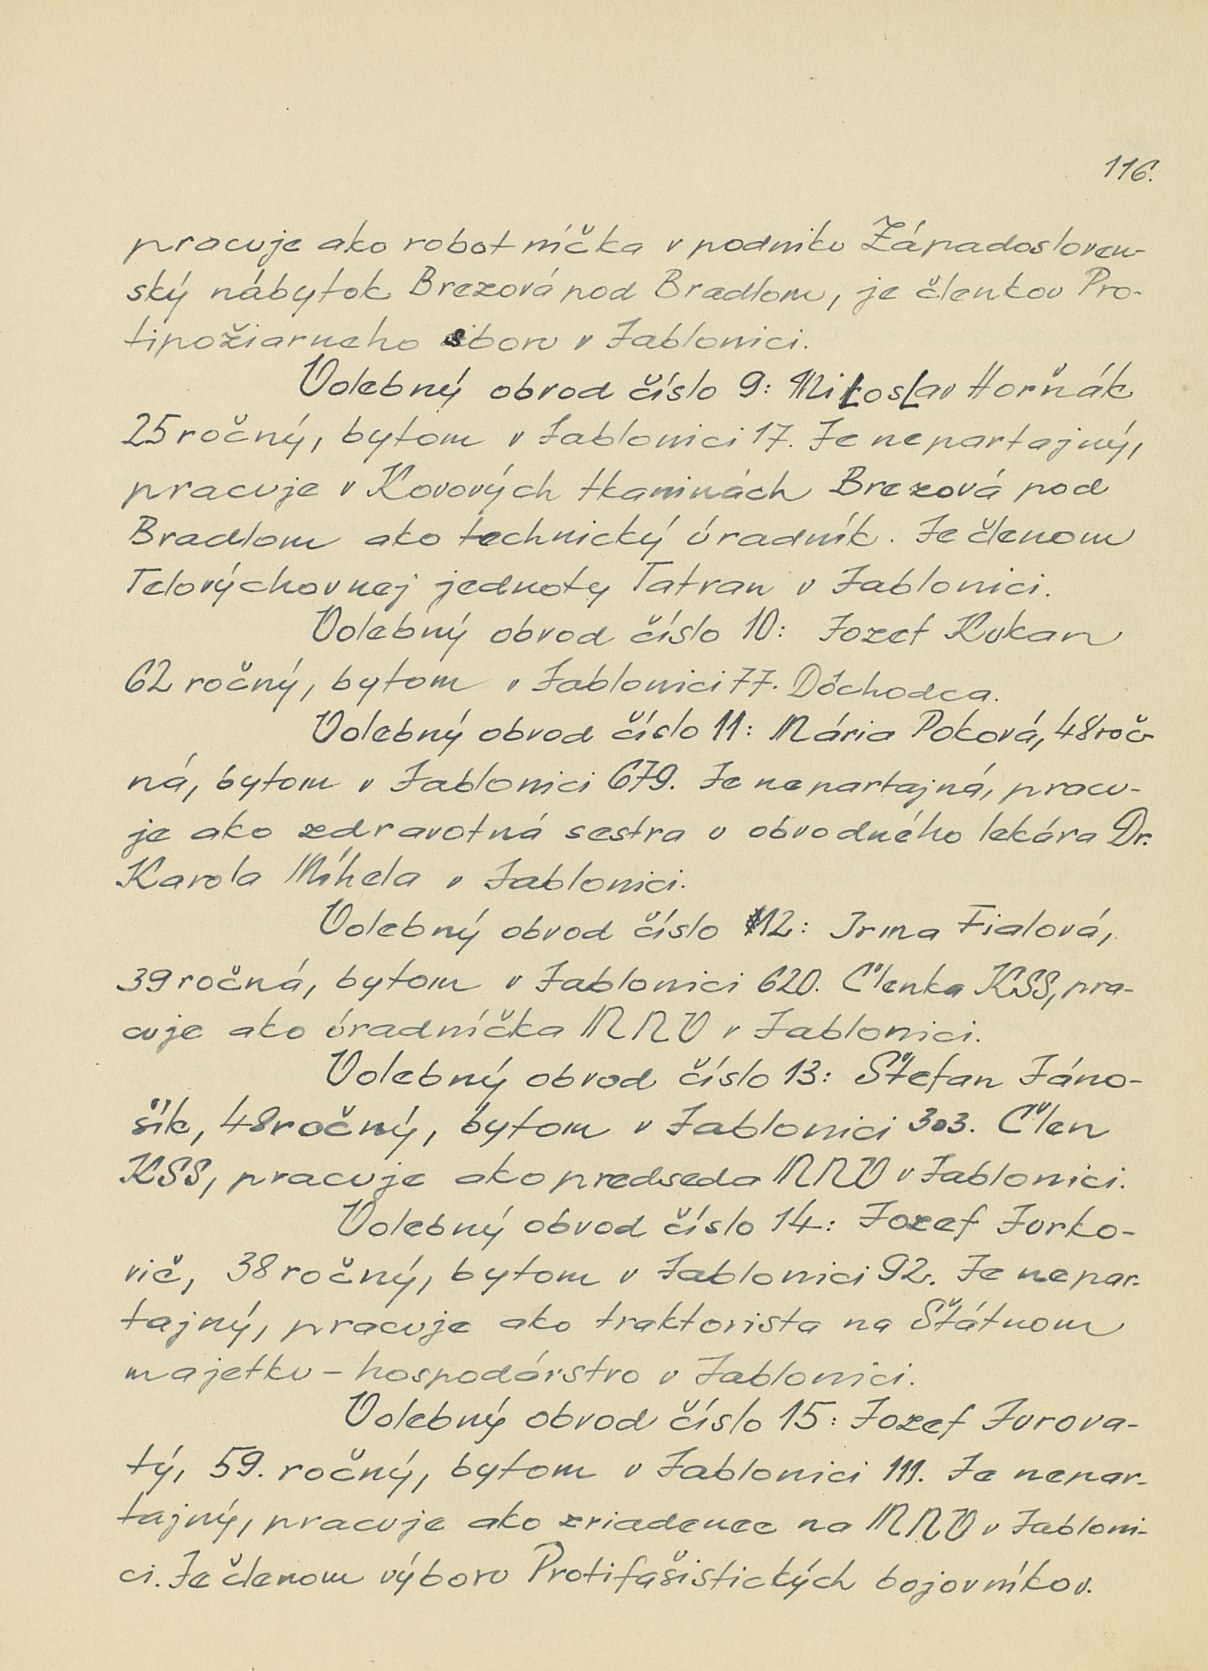 116.
pracuje ako robotníčka v podniku Západosloven-
ský nábytok Brezová pod Bradlom, je členkou Pro-
tipožiarneho sboru v Jablonici.
Volebný obvod číslo 9: Miloslav Horňák
25 ročný, bytom v Jablonici 17. Je nepartajný,
pracuje v Kovových tkaninách Brezová pod
Bradlom ako technický úradník. Je členom
Telovýchovnej jednoty Tatran v Jablonici.
Volebný obvod číslo 10: Jozef Kukan
62 ročný, bytom v Jablonici 77. Dôchodca.
Volebný obvod číslo 11: Mária Poková, 48 roč-
ná, bytom v Jablonici 679. Je nepartajná, pracu-
je ako zdravotná sestra u obvodného lekára Dr.
Karola Míhela v Jablonici.
Volebný obvod číslo 12: Irma Fialová,
39 ročná, bytom v Jablonici 620. Členka KSS, pra-
cuje ako úradníčka MNV v Jablonici.
Volebný obvod číslo 13: Štefan Jáno-
šík, 48 ročný, bytom v Jablonici 303. Člen
KSS, pracuje ako predseda MNV v Jablonici.
Volebný obvod číslo 14: Jozef Jurko-
vič, 38 ročný, bytom v Jablonici 92. Je nepar-
tajný, pracuje ako traktorista na Štátnom
majetku - hospodárstvo v Jablonici.
Volebný obvod číslo 15: Jozef Jurova-
tý, 59. ročný, bytom v Jablonici 111. Je nepar-
tajný, pracuje ako zriadenec na MNV v Jabloni-
ci. Je členom výboru Protifašistických bojovníkov.